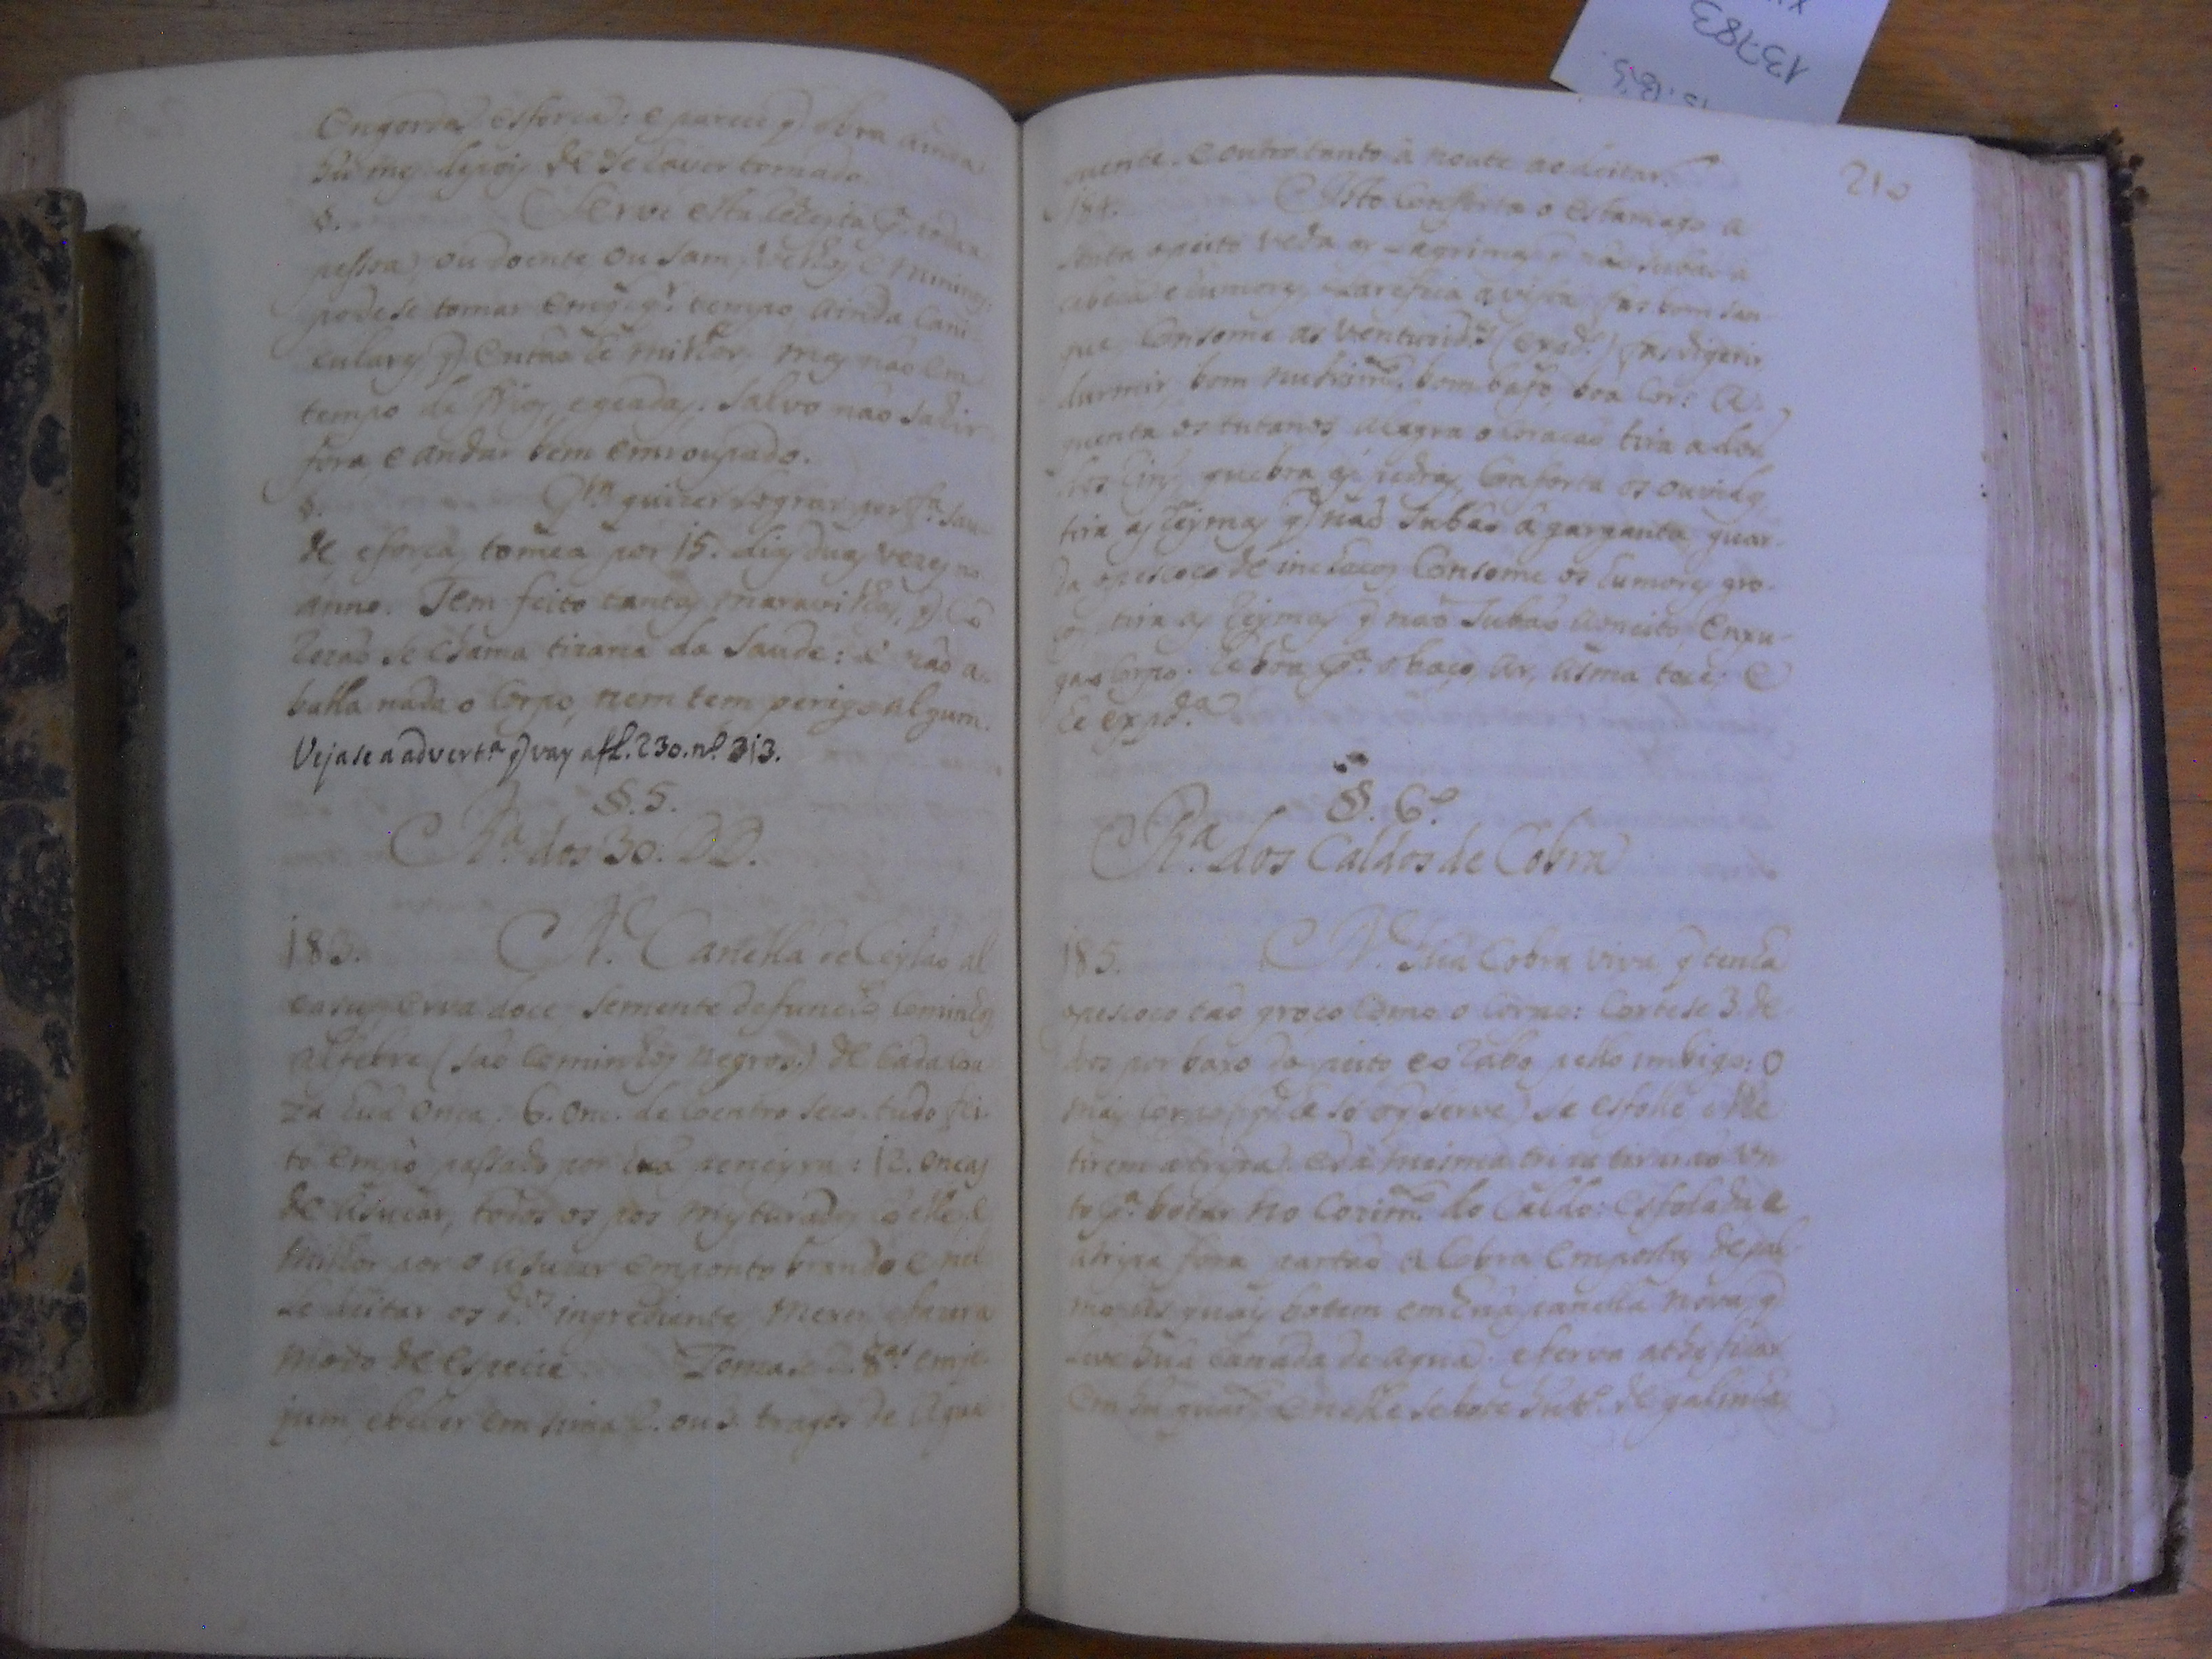 Engorda, esforca: e parece q̃ obra ainda
hũ mes depois de se haver tomado.
§. Serve esta Receita p.ᵃ toda a
pessoa, ou doente ou sam, velhos e mininos:
podese tomar em q̃l q.ʳ tempo, ainda Cani-
culares, q̃ entaõ hé milhor. mas naõ em
tempo de frios, egeadas. salvo naõ sahir
fora, e andar bem emroupado.
§. Q.ᵐ quizer lograr perf.ᵃ sau-
de eforças tomea por 15. dias duas vezes no
anno. Tem feito tantas maravilhas, q̃ Cõ
Rezaõ se chama tirana da Saude: e naõ a-
balla nada o Corpo, nem tem perigo algum.
Vejase a advert.ᵃ q̃ vay a fl. 230. n.º 313.
§. 5.
R.ᵃ dos 30. DD.
183. R.ᵉ Canella de Ceylaõ al
carus erva doce semente de funcho, Cominhos
alfebre (saõ Cominhos negros.) de Cada cou
za huã onça. 6. onc. de Coentro seco. tudo fei-
to empò passado por huã peneyra: 12. onças
de asucar, todos os pos misturados cõ elle, e
milhor por o asucar emponto brando e nel
le deitar os d.ᵒˢ ingredientes mexer efazer a
modo de especie. Tomase 2. 8.ᵃˢ emje-
jum, ebeber em sima 2. ou 3. tragos de Agua
210
quente. e outro tanto à noute ao deitar.
184. Isto Conforta o estamago a
senta opeito veda as Lagrimas q̃ naõ subaõ à
cabeca e humores, Clarefica a vista fas bom san-
gue, Consome as ventuzid.ᵉˢ (exp.ᵈᵃ) fas digerir
durmir, bom nutrim.ᵗᵒ, bom bafo, boa Cor: A-
quenta os tutanos, alegra o coracaõ tira a dor
dos Rins, quebra as pedras, Conforta os ouvidos,
tira as Reymas q̃ naõ subaõ à garganta, guar-
da opescoço de inchaços Consome os humores gro-
ços, tira as Reymas q̃ naõ subaõ ao peito, Enxu-
ga o Corpo. he boa p.ᵃ o baço, ar, asma tose; e
he exp.ᵈᵃ
§. 6.º
R.ᵃ dos Caldos de Cobra
185. R.ᵉ Huã Cobra viva q̃ tenha
opescoco taõ groço Como o Corpo: Cortese 3. de-
dos por baxo do peito eo Rabo pello imbigo: O
mais Corpo (q̃ hé só oq̃ serve) se esfolle elhe
tirem a tripa. e da mesma tripa tiraraõ un
to p.ᵃ botar no Cozim.ᵗᵒ do Caldo: esfolada e
atripa fora partaõ a Cobra em postas de pal-
mo as quais botem em huã panella nova, q̃
leve huã Canada de agua. e ferva athe ficar
em hũ quar.ᵗᵒ, e nelle se bote hũ de galinha,
13783